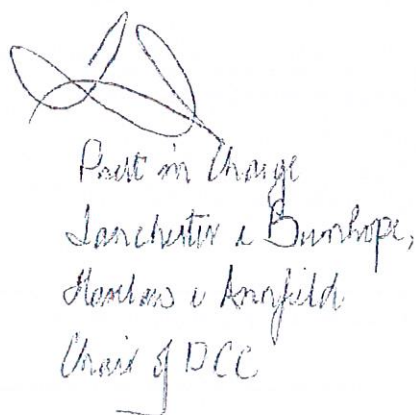 Priest in Charge
Lanchester & Burnhope,
& Annfield
Chair of DCC